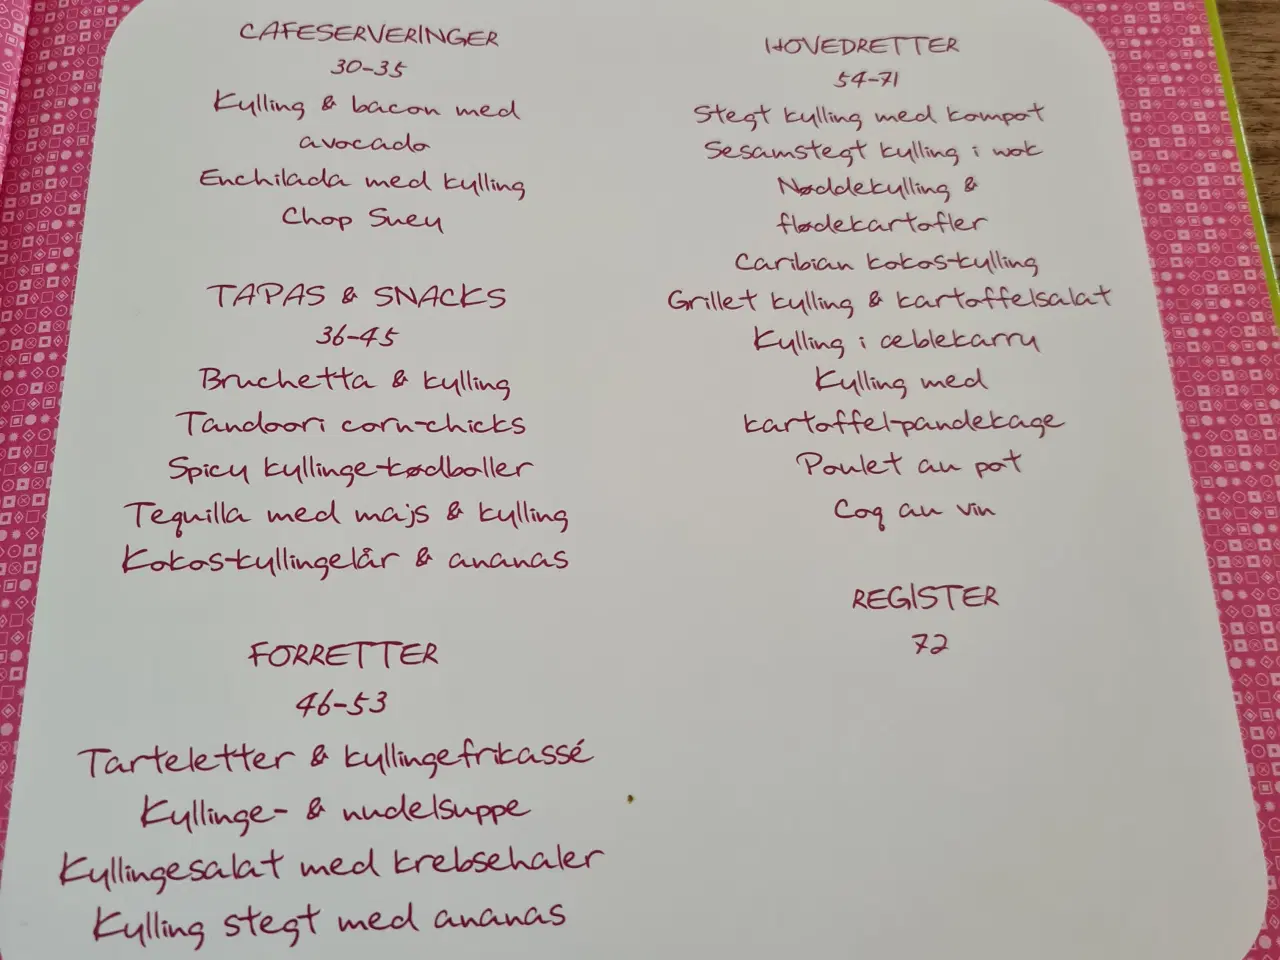 CAFESERVERINGER
30-35
Kylling & bacon med
avocado
Enchilada med kylling
Chop Suey
TAPAS & SNACKS
36-45
Bruchetta & kylling
Tandoori corn-chicks
Spicy kyllinge-kødboller
Tequilla med majs & kylling
Kokos-kyllingelår & ananas
FORRETTER
46-53
Tarteletter & kyllingefrikassé
Kyllinge- & nudelsuppe
Kyllingesalat med krebsehaler
Kylling stegt med ananas
HOVEDRETTER
54-71
Stegt kylling med kompot
Sesamstegt kylling i wok
Nøddekylling &
flødekartofler
Caribian kokos-kylling
Grillet kylling & kartoffelsalat
Kylling i æblekarry
Kylling med
kartoffel-pandekage
Poulet au pot
Coq au vin
REGISTER
72